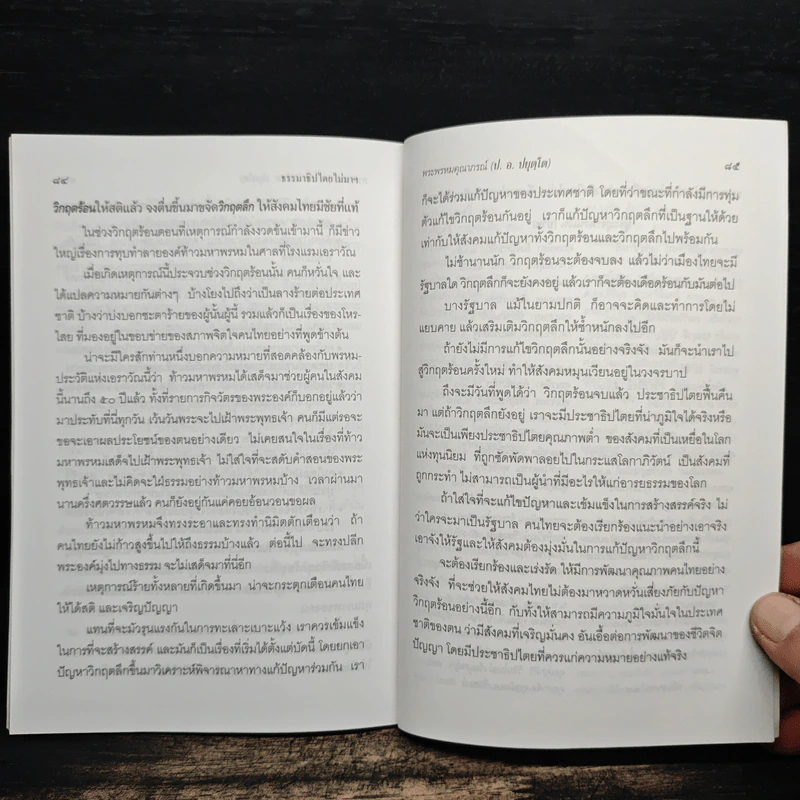 ๘๔ ธรรมาธิปไตยไม่มาฯ
วิกฤตร้อนให้สติแล้ว จงตื่นขึ้นมาขจัดวิกฤตลึก ให้สังคมไทยมีชัยที่แท้
ในช่วงวิกฤตร้อนตอนที่เหตุการณ์กำลังงวดขันเข้ามานี้ ก็มีข่าว
ใหญ่เรื่องการทุบทำลายองค์ท้าวมหาพรหมในศาลที่โรงแรมเอราวัณ
เมื่อเกิดเหตุการณ์นี้ประจวบช่วงวิกฤตร้อนนั้น คนก็หวั่นใจ และ
ได้แปลความหมายกันต่างๆ บ้างโยงไปถึงว่าเป็นลางร้ายต่อประเทศ
ชาติ บ้างว่าบ่งบอกชะตาร้ายของผู้นั้นผู้นี้ รวมแล้วก็เป็นเรื่องของโหร-
ไสย ที่มองอยู่ในขอบข่ายของสภาพจิตใจคนไทยอย่างที่พูดข้างต้น
น่าจะมีใครสักท่านหนึ่งบอกความหมายที่สอดคล้องกับพรหม-
ประวัติแห่งเอราวัณนี้ว่า ท้าวมหาพรหมได้เสด็จมาช่วยผู้คนในสังคม
นี้นานถึง ๕๐ ปีแล้ว ทั้งที่รายการกิจวัตรของพระองค์ก็บอกอยู่แล้วว่า
มาประทับที่นี่ทุกวัน เว้นวันพระจะไปเฝ้าพระพุทธเจ้า คนก็มีแต่รอจะ
ขอจะเอาผลประโยชน์ของตนอย่างเดียว ไม่เคยสนใจในเรื่องที่ท้าว
มหาพรหมเสด็จไปเฝ้าพระพุทธเจ้า ไม่ใส่ใจที่จะสดับคำสอนของพระ
พุทธเจ้าและไม่คิดจะใฝ่ธรรมอย่างท้าวมหาพรหมบ้าง เวลาผ่านมา
นานครึ่งศตวรรษแล้ว คนก็ยังอยู่กันแค่คอยอ้อนวอนขอผล
ท้าวมหาพรหมจึงทรงระอาและทรงทำนิมิตตักเตือนว่า ถ้า
คนไทยยังไม่ก้าวสูงขึ้นไปให้ถึงธรรมบ้างแล้ว ต่อนี้ไป จะทรงปลีก
พระองค์มุ่งไปทางธรรม จะไม่เสด็จมาที่นี่อีก
เหตุการณ์ร้ายทั้งหลายที่เกิดขึ้นมา น่าจะกระตุกเตือนคนไทย
ให้ได้สติ และเจริญปัญญา
แทนที่จะมัวรุนแรงกันในการทะเลาะเบาะแว้ง เราควรเข้มแข็ง
ในการที่จะสร้างสรรค์ และมันก็เป็นเรื่องที่เริ่มได้ตั้งแต่บัดนี้ โดยยกเอา
ปัญหาวิกฤตลึกขึ้นมาวิเคราะห์พิจารณาหาทางแก้ปัญหาร่วมกัน เรา
พระพรหมคุณาภรณ์ (ป. อ. ปยุตฺโต) ๘๕
ก็จะได้ร่วมแก้ปัญหาของประเทศชาติ โดยที่ว่าขณะที่กำลังมีการทุ่ม
ตัวแก้ไขวิกฤตร้อนกันอยู่ เราก็แก้ปัญหาวิกฤตลึกที่เป็นฐานให้ด้วย
เท่ากับให้สังคมแก้ปัญหาทั้งวิกฤตร้อนและวิกฤตลึกไปพร้อมกัน
ไม่ช้านานนัก วิกฤตร้อนจะต้องจบลง แล้วไม่ว่าเมืองไทยจะมี
รัฐบาลใด วิกฤตลึกก็จะยังคงอยู่ แล้วเราก็จะต้องเดือดร้อนกับมันต่อไป
บางรัฐบาล แม้ในยามปกติ ก็อาจจะคิดและทำการโดยไม่
แยบคาย แล้วเสริมเติมวิกฤตลึกให้ซ้ำหนักลงไปอีก
ถ้ายังไม่มีการแก้ไขวิกฤตลึกนั้นอย่างจริงจัง มันก็จะนำเราไป
สู่วิกฤตร้อนครั้งใหม่ ทำให้สังคมหมุนเวียนอยู่ในวงจรบาป
ถึงจะมีวันที่พูดได้ว่า วิกฤตร้อนจบแล้ว ประชาธิปไตยฟื้นคืน
มา แต่ถ้าวิกฤตลึกยังอยู่ เราจะมีประชาธิปไตยที่น่าภูมิใจได้จริงหรือ
มันจะเป็นเพียงประชาธิปไตยคุณภาพต่ำ ของสังคมที่เป็นเหยื่อในโลก
แห่งทุนนิยม ที่ถูกซัดพัดพาลอยไปในกระแสโลกาภิวัตน์ เป็นสังคมที่
ถูกกระทำ ไม่สามารถเป็นผู้นำที่มีอะไรให้แก่อารยธรรมของโลก
ถ้าใส่ใจที่จะแก้ไขปัญหาและเข้มแข็งในการสร้างสรรค์จริง ไม่
ว่าใครจะมาเป็นรัฐบาล คนไทยจะต้องเรียกร้องแนะนำอย่างเอาจริง
เอาจังให้รัฐและให้สังคมต้องมุ่งมั่นในการแก้ปัญหาวิกฤตลึกนี้
จะต้องเรียกร้องและเร่งรัด ให้มีการพัฒนาคุณภาพคนไทยอย่าง
จริงจัง ที่จะช่วยให้สังคมไทยไม่ต้องมาหวาดหวั่นเสี่ยงภัยกับปัญหา
วิกฤตร้อนอย่างนี้อีก กับทั้งให้สามารถมีความภูมิใจมั่นใจในประเทศ
ชาติของตน ว่ามีสังคมที่เจริญมั่นคง อันเอื้อต่อการพัฒนาของชีวิตจิต
ปัญญา โดยมีประชาธิปไตยที่ควรแก่ความหมายอย่างแท้จริง